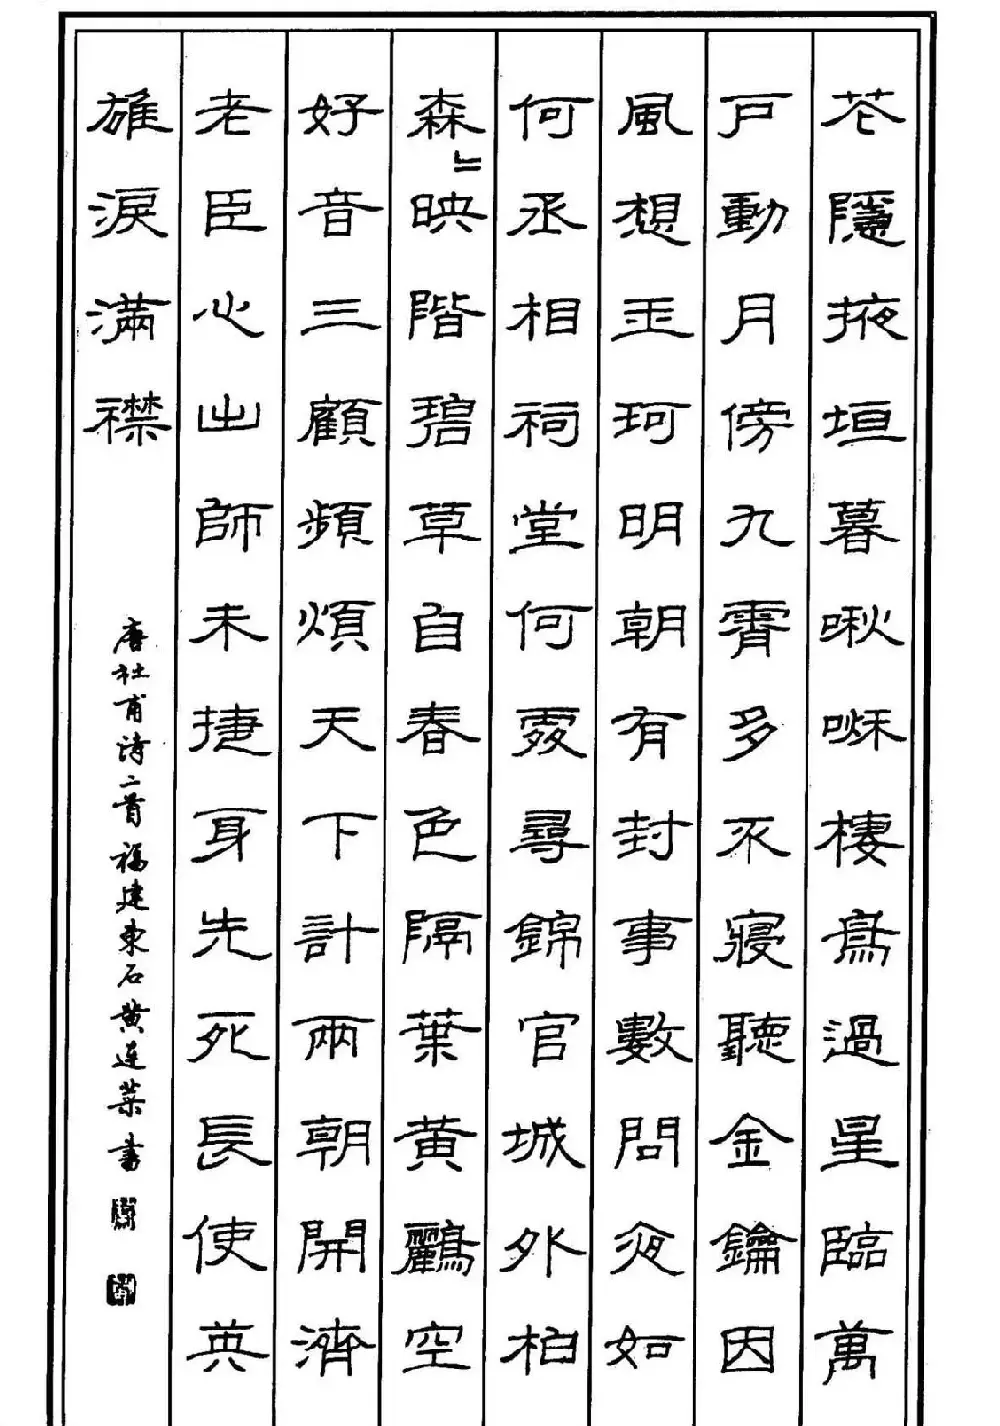 花隱掖垣暮啾啾棲鳥過星臨萬
戶動月傍九霄多不寢聽金鑰因
風想玉珂明朝有封事數問夜如
何丞相祠堂何處尋錦官城外柏
森〻映階碧草自春色隔葉黄鸝空
好音三顧頻煩天下計兩朝開濟
老臣心出師未捷身先死長使英
雄淚滿襟
唐杜甫诗二首福建东石黄连菜书